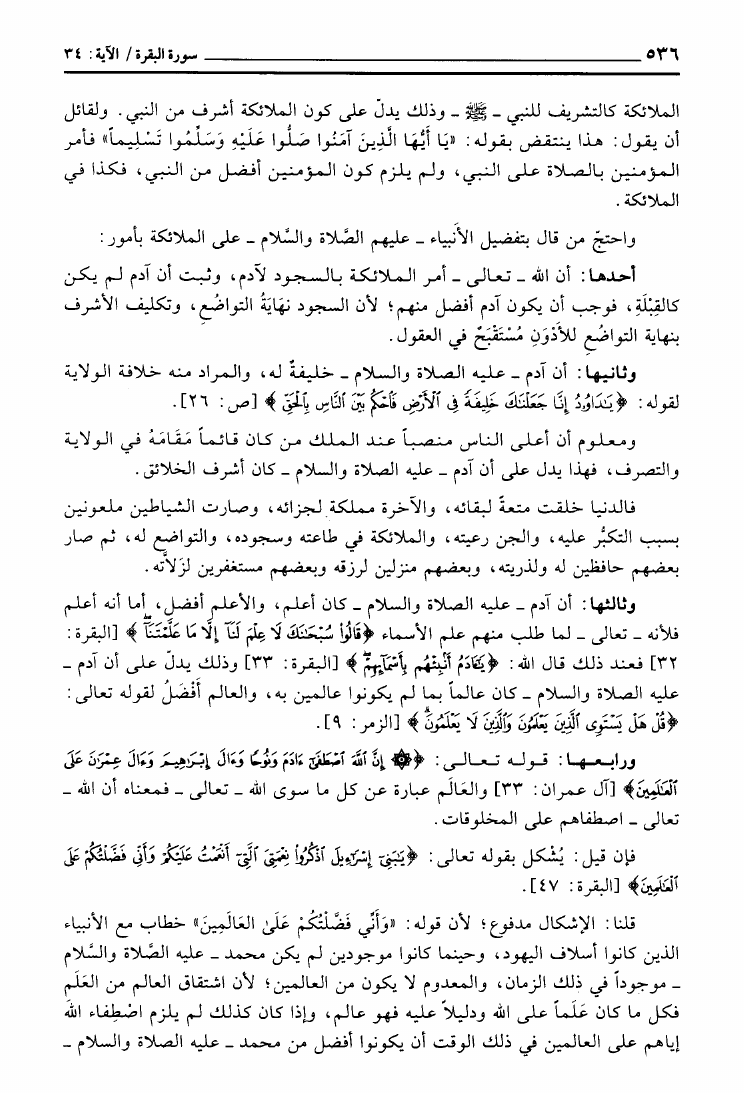 ٥٣٦ سورة البقرة / الآية: ٣٤
الملائكة كالتشريف للنبي ـ ﷺ ـ وذلك يدلّ على كون الملائكة أشرف من النبي. ولقائل
أن يقول: هذا ينتقض بقوله: «يَا أَيُّهَا الَّذِينَ آمَنُوا صَلُّوا عَلَيْهِ وَسَلِّمُوا تَسْلِيماً» فأمر
المؤمنين بالصلاة على النبي، ولم يلزم كون المؤمنين أفضل من النبي، فكذا في
الملائكة.
واحتجّ من قال بتفضيل الأنبياء ـ عليهم الصَّلاة والسَّلام ـ على الملائكة بأمور:
أحدها: أن الله ـ تعالى ـ أمر الملائكة بالسجود لآدم، وثبت أن آدم لم يكن
كالقِبْلَةِ، فوجب أن يكون آدم أفضل منهم؛ لأن السجود نهَايَةُ التواضُعِ، وتكليف الأشرف
بنهاية التواضُعِ للأَدْوَنِ مُسْتَقْبَحٌ في العقول.
وثانيها: أن آدم ـ عليه الصلاة والسلام ـ خليفةٌ له، والمراد منه خلافة الولاية
لقوله: ﴿يَٰدَاوُۥدُ إِنَّا جَعَلْنَٰكَ خَلِيفَةً فِى ٱلْأَرْضِ فَٱحْكُم بَيْنَ ٱلنَّاسِ بِٱلْحَقِّ﴾ [ص: ٢٦].
ومعلوم أن أعلى الناس منصباً عند الملك من كان قائماً مَقَامَهُ في الولاية
والتصرف، فهذا يدل على أن آدم ـ عليه الصلاة والسلام ـ كان أشرف الخلائق.
فالدنيا خلقت متعةً لبقائه، والآخرة مملكة لجزائه، وصارت الشياطين ملعونين
بسبب التكبُّر عليه، والجن رعيته، والملائكة في طاعته وسجوده، والتواضع له، ثم صار
بعضهم حافظين له ولذريته، وبعضهم منزلين لرزقه وبعضهم مستغفرين لزَلاَّته.
وثالثها: أن آدم ـ عليه الصلاة والسلام ـ كان أعلم، والأعلم أفضل، أما أنه أعلم
فلأنه ـ تعالى ـ لما طلب منهم علم الأسماء ﴿قَالُوا۟ سُبْحَٰنَكَ لَا عِلْمَ لَنَآ إِلَّا مَا عَلَّمْتَنَآ﴾ [البقرة:
٣٢] فعند ذلك قال الله: ﴿يَٰٓـَٔادَمُ أَنۢبِئْهُم بِأَسْمَآئِهِمْ﴾ [البقرة: ٣٣] وذلك يدلّ على أن آدم ـ
عليه الصلاة والسلام ـ كان عالماً بما لم يكونوا عالمين به، والعالم أَفْضَلُ لقوله تعالى:
﴿قُلْ هَلْ يَسْتَوِى ٱلَّذِينَ يَعْلَمُونَ وَٱلَّذِينَ لَا يَعْلَمُونَ﴾ [الزمر: ٩].
ورابعها: قوله تعالى: ﴿۞ إِنَّ ٱللَّهَ ٱصْطَفَىٰٓ ءَادَمَ وَنُوحًا وَءَالَ إِبْرَٰهِيمَ وَءَالَ عِمْرَٰنَ عَلَى
ٱلْعَٰلَمِينَ﴾ [آل عمران: ٣٣] والعَالَم عبارة عن كل ما سوى الله ـ تعالى ـ فمعناه أن الله ـ
تعالى ـ اصطفاهم على المخلوقات.
فإن قيل: يُشْكل بقوله تعالى: ﴿يَٰبَنِىٓ إِسْرَٰٓءِيلَ ٱذْكُرُوا۟ نِعْمَتِىَ ٱلَّتِىٓ أَنْعَمْتُ عَلَيْكُمْ وَأَنِّى فَضَّلْتُكُمْ عَلَى
ٱلْعَٰلَمِينَ﴾ [البقرة: ٤٧].
قلنا: الإشكال مدفوع؛ لأن قوله: «وَأَنِّي فَضَّلْتُكُمْ عَلَىٰ العَالَمِينَ» خطاب مع الأنبياء
الذين كانوا أسلاف اليهود، وحينما كانوا موجودين لم يكن محمد ـ عليه الصَّلاة والسَّلام
ـ موجوداً في ذلك الزمان، والمعدوم لا يكون من العالمين؛ لأن اشتقاق العالم من العَلَم
فكل ما كان عَلَماً على الله ودليلاً عليه فهو عالم، وإذا كان كذلك لم يلزم اصْطِفاء اللهَ
إياهم على العالمين في ذلك الوقت أن يكونوا أفضل من محمد ـ عليه الصلاة والسلام ـ